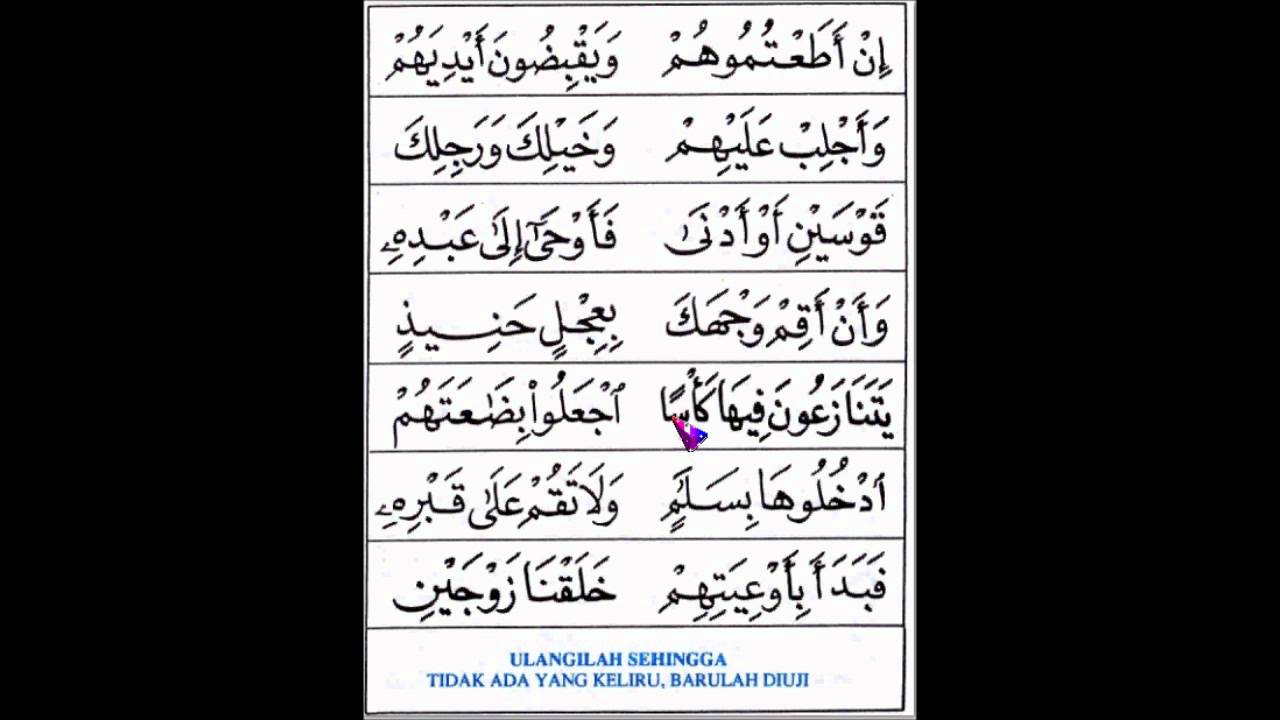 إِنْ أَطَعْتُمُوهُمْ وَيَقْبِضُونَ أَيْدِيَهُمْ
وَأَجْلِبْ عَلَيْهِمْ وَخَيْلِكَ وَرَجِلِكَ
قَوْسَيْنِ أَوْ أَدْنَىٰ فَأَوْحَىٰٓ إِلَىٰ عَبْدِهِۦ
وَأَنْ أَقِمْ وَجْهَكَ بِعِجْلٍ حَنِيذٍ
يَتَنَازَعُونَ فِيهَا كَأْسًا ٱجْعَلُوا۟ بِضَٰعَتَهُمْ
ٱدْخُلُوهَا بِسَلَٰمٍ وَلَا تَقُمْ عَلَىٰ قَبْرِهِۦ
فَبَدَأَ بِأَوْعِيَتِهِمْ خَلَقْنَا زَوْجَيْنِ
ULANGILAH SEHINGGA
TIDAK ADA YANG KELIRU, BARULAH DIUJI